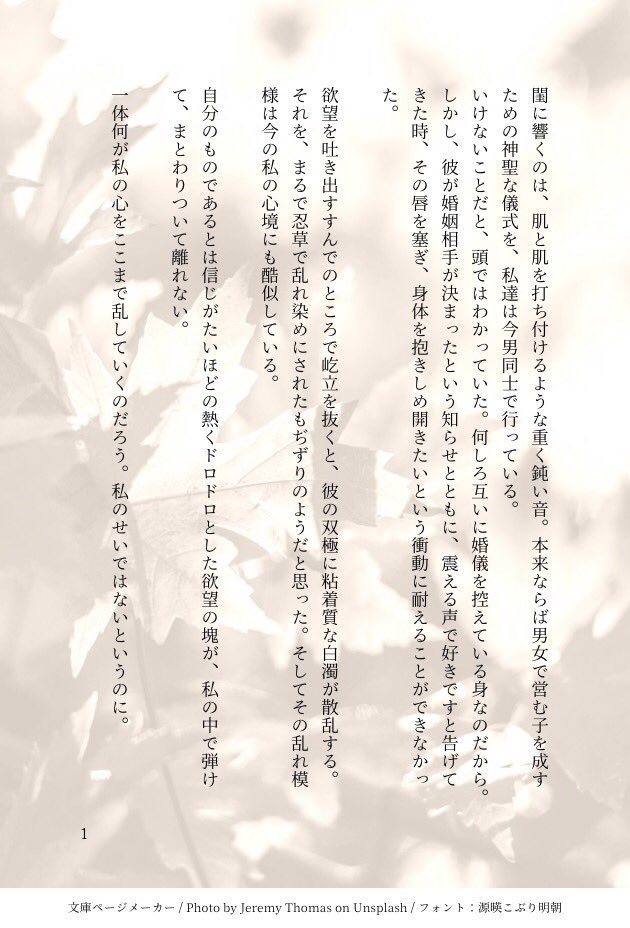 閨に響くのは、肌と肌を打ち付けるような重く鈍い音。本来ならば男女で営む子を成す
ための神聖な儀式を、私達は今男同士で行っている。
いけないことだと、頭ではわかっていた。何しろ互いに婚儀を控えている身なのだから。
しかし、彼が婚姻相手が決まったという知らせとともに、震える声で好きですと告げて
きた時、その唇を塞ぎ、身体を抱きしめ開きたいという衝動に耐えることができなかっ
た。
欲望を吐き出すすんでのところで屹立を抜くと、彼の双極に粘着質な白濁が散乱する。
それを、まるで忍草で乱れ染めにされたもぢずりのようだと思った。そしてその乱れ模
様は今の私の心境にも酷似している。
自分のものであるとは信じがたいほどの熱くドロドロとした欲望の塊が、私の中で弾け
て、まとわりついて離れない。
一体何が私の心をここまで乱していくのだろう。私のせいではないというのに。
1
文庫ページメーカー / Photo by Jeremy Thomas on Unsplash / フォント：源暎こぶり明朝